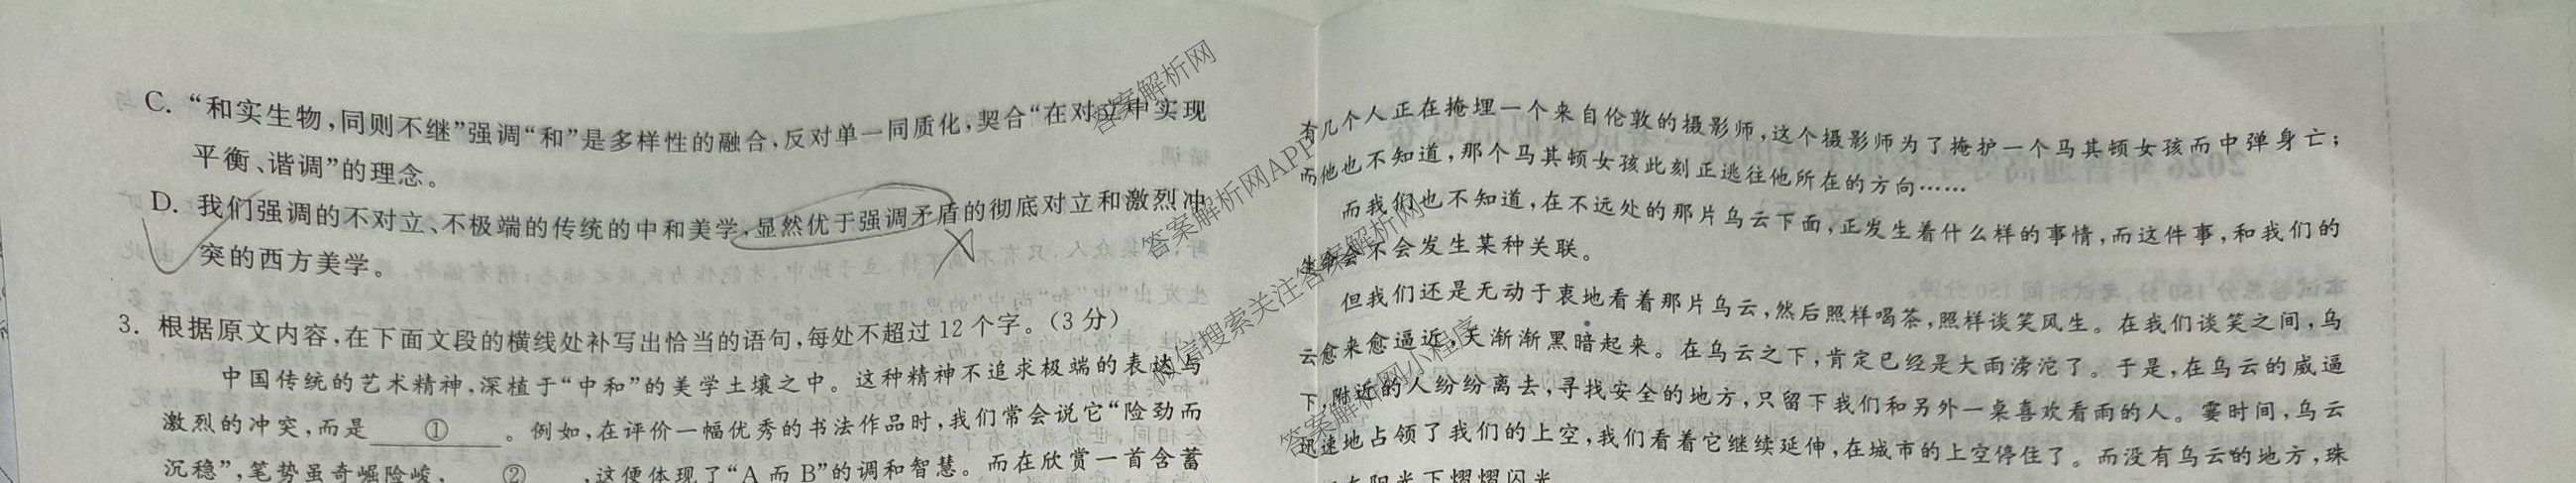 C. “和实生物,同则不继”强调“和”是多样性的融合,反对单一同质化,契合“在对立中实现
平衡、谐调”的理念。
D. 我们强调的不对立、不极端的传统的中和美学,显然优于强调矛盾的彻底对立和激烈冲
突的西方美学。
3. 根据原文内容,在下面文段的横线处补写出恰当的语句,每处不超过 12 个字。(3 分)
中国传统的艺术精神,深植于“中和”的美学土壤之中。这种精神不追求极端的表达与
激烈的冲突,而是 ① 。例如,在评价一幅优秀的书法作品时,我们常会说它“险劲而
沉稳”,笔势虽奇崛险峻, ② ,这便体现了“A 而 B”的调和智慧。而在欣赏一首含蓄
有几个人正在掩埋一个来自伦敦的摄影师,这个摄影师为了掩护一个马其顿女孩而中弹身亡;
而他也不知道,那个马其顿女孩此刻正逃往他所在的方向……
而我们也不知道,在不远处的那片乌云下面,正发生着什么样的事情,而这件事,和我们的
生命会不会发生某种关联。
但我们还是无动于衷地看着那片乌云,然后照样喝茶,照样谈笑风生。在我们谈笑之间,乌
云愈来愈逼近,天渐渐黑暗起来。在乌云之下,肯定已经是大雨滂沱了。于是,在乌云的威逼
下,附近的人纷纷离去,寻找安全的地方,只留下我们和另外一桌喜欢看雨的人。霎时间,乌云
迅速地占领了我们的上空,我们看着它继续延伸,在城市的上空停住了。而没有乌云的地方,珠
阳光下熠熠闪光
答案解析网
答案解析网APP
微信搜索关注答案解析网
答案解析网小程序